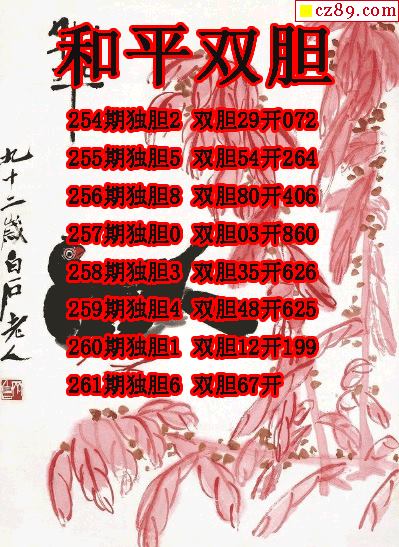 cz89.com
和平双胆
254期独胆2 双胆29开072
255期独胆5 双胆54开264
256期独胆8 双胆80开406
257期独胆0 双胆03开860
258期独胆3 双胆35开626
259期独胆4 双胆48开625
260期独胆1 双胆12开199
261期独胆6 双胆67开
九十二岁白石老人